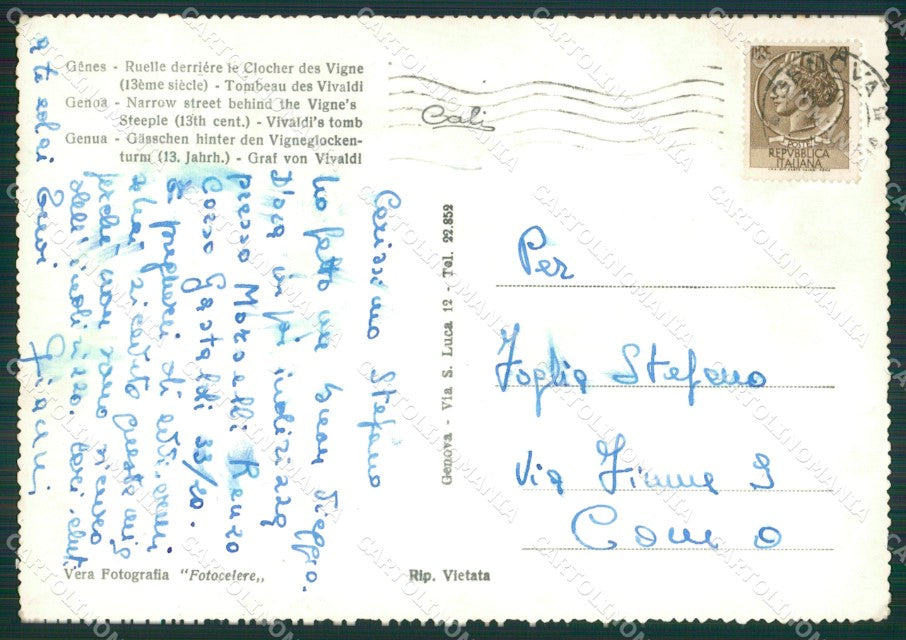 Gênes - Ruelle derriére le Clocher des Vigne
(13ème siècle) - Tombeau des Vivaldi
Genoa - Narrow street behind the Vigne's
Steeple (13th cent.) - Vivaldi's tomb
Genua - Gässchen hinter den Vigneglocken-
turm (13. Jahrh.) - Graf von Vivaldi
20
GENOVA
POSTE
REPVBBLICA
ITALIANA
Carissimo Stefano
ho fatto un buon
D'ora in poi indirizza
presso Morselli Renzo
Corso Gastaldi 33/20.
Ti pregherei di
ricevuto questa mia
perché non sono sicuro
dell'indirizzo.
Genova - Via S. Luca 12 - Tel. 22.852
Per
Foglia Stefano
Via 9
Como
Vera Fotografia "Fotocelere,,
Rip. Vietata
CARTOLINOMANIA